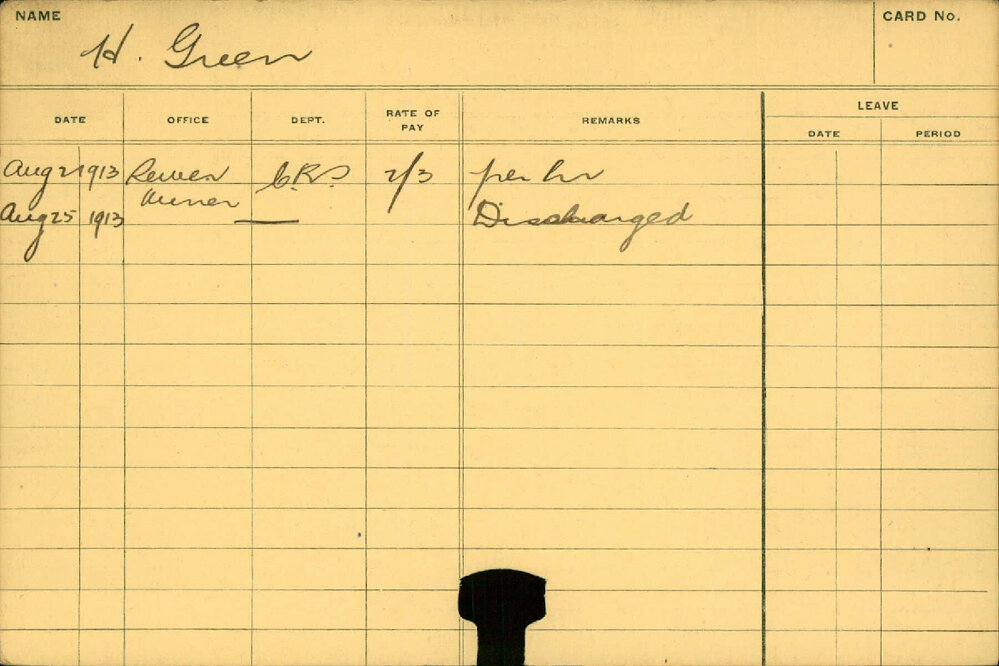 NAME
CARD No.
H. Green
DATE OFFICE DEPT. RATE OF PAY REMARKS LEAVE
DATE PERIOD
Aug 21 1913 Sewer C.R.S. 2/3 per hr
Miner
Aug 25 1913 — Discharged